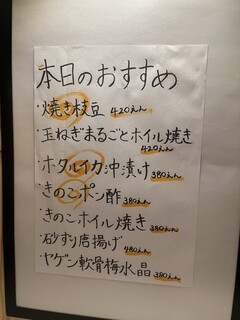 本日のおすすめ
・焼き枝豆 420えん
・玉ねぎまるごとホイル焼き
420えん
・ホタルイカ沖漬け 380えん
・きのこポン酢 380えん
・きのこホイル焼き 380えん
・砂ずり唐揚げ 480えん
・ヤゲン軟骨梅水晶 380えん